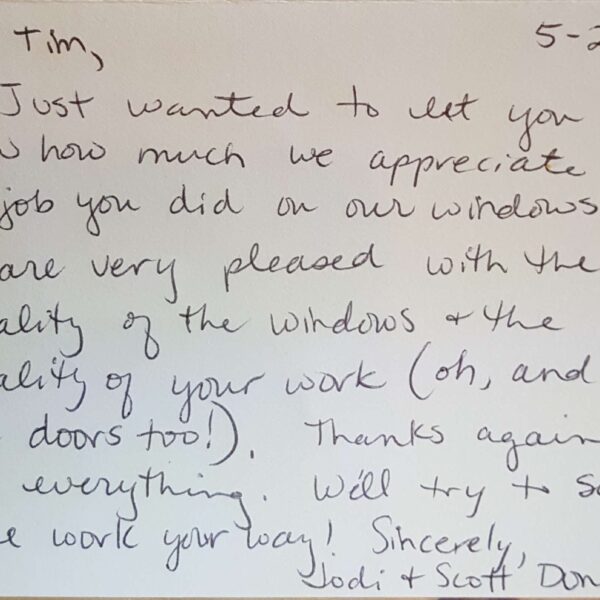 Tim, 5-2
Just wanted to let you
how much we appreciate
job you did on our windows
are very pleased with the
ality of the windows + the
ality of your work (oh, and
doors too!). Thanks again
everything. We'll try to s
e work your way! Sincerely,
Jodi + Scott Don